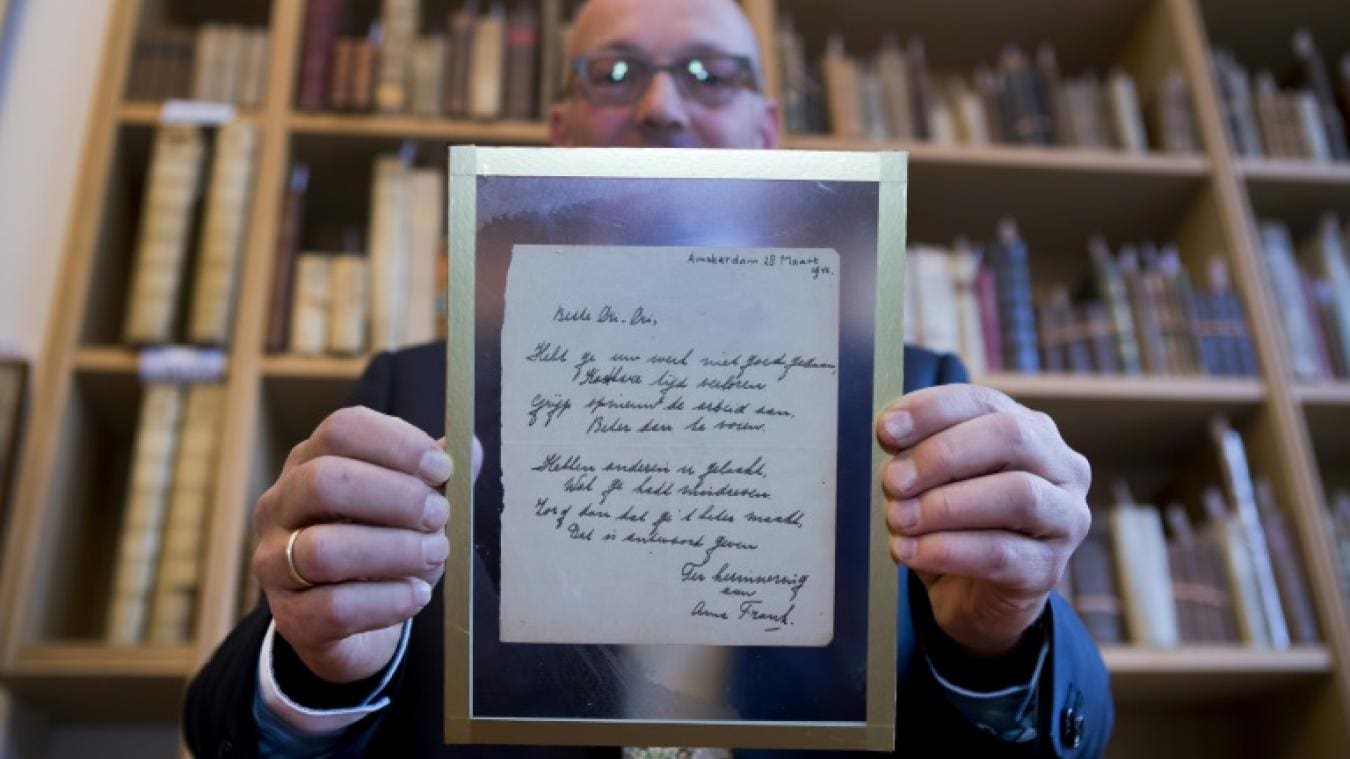 Amsterdam 28 Maart
1942.
Beste Cri-Cri,
Hebt ge uw werk niet goed gedaan,
Kostbare tijd verloren
Grijp opnieuw de arbeid aan,
Beter dan te voren.
Hebben anderen u gelaakt,
Wat ge hadt misdreven.
Zorg dan dat ge 't beter maakt,
Dat is antwoord geven
Ter herinnering
aan
Anne Frank.